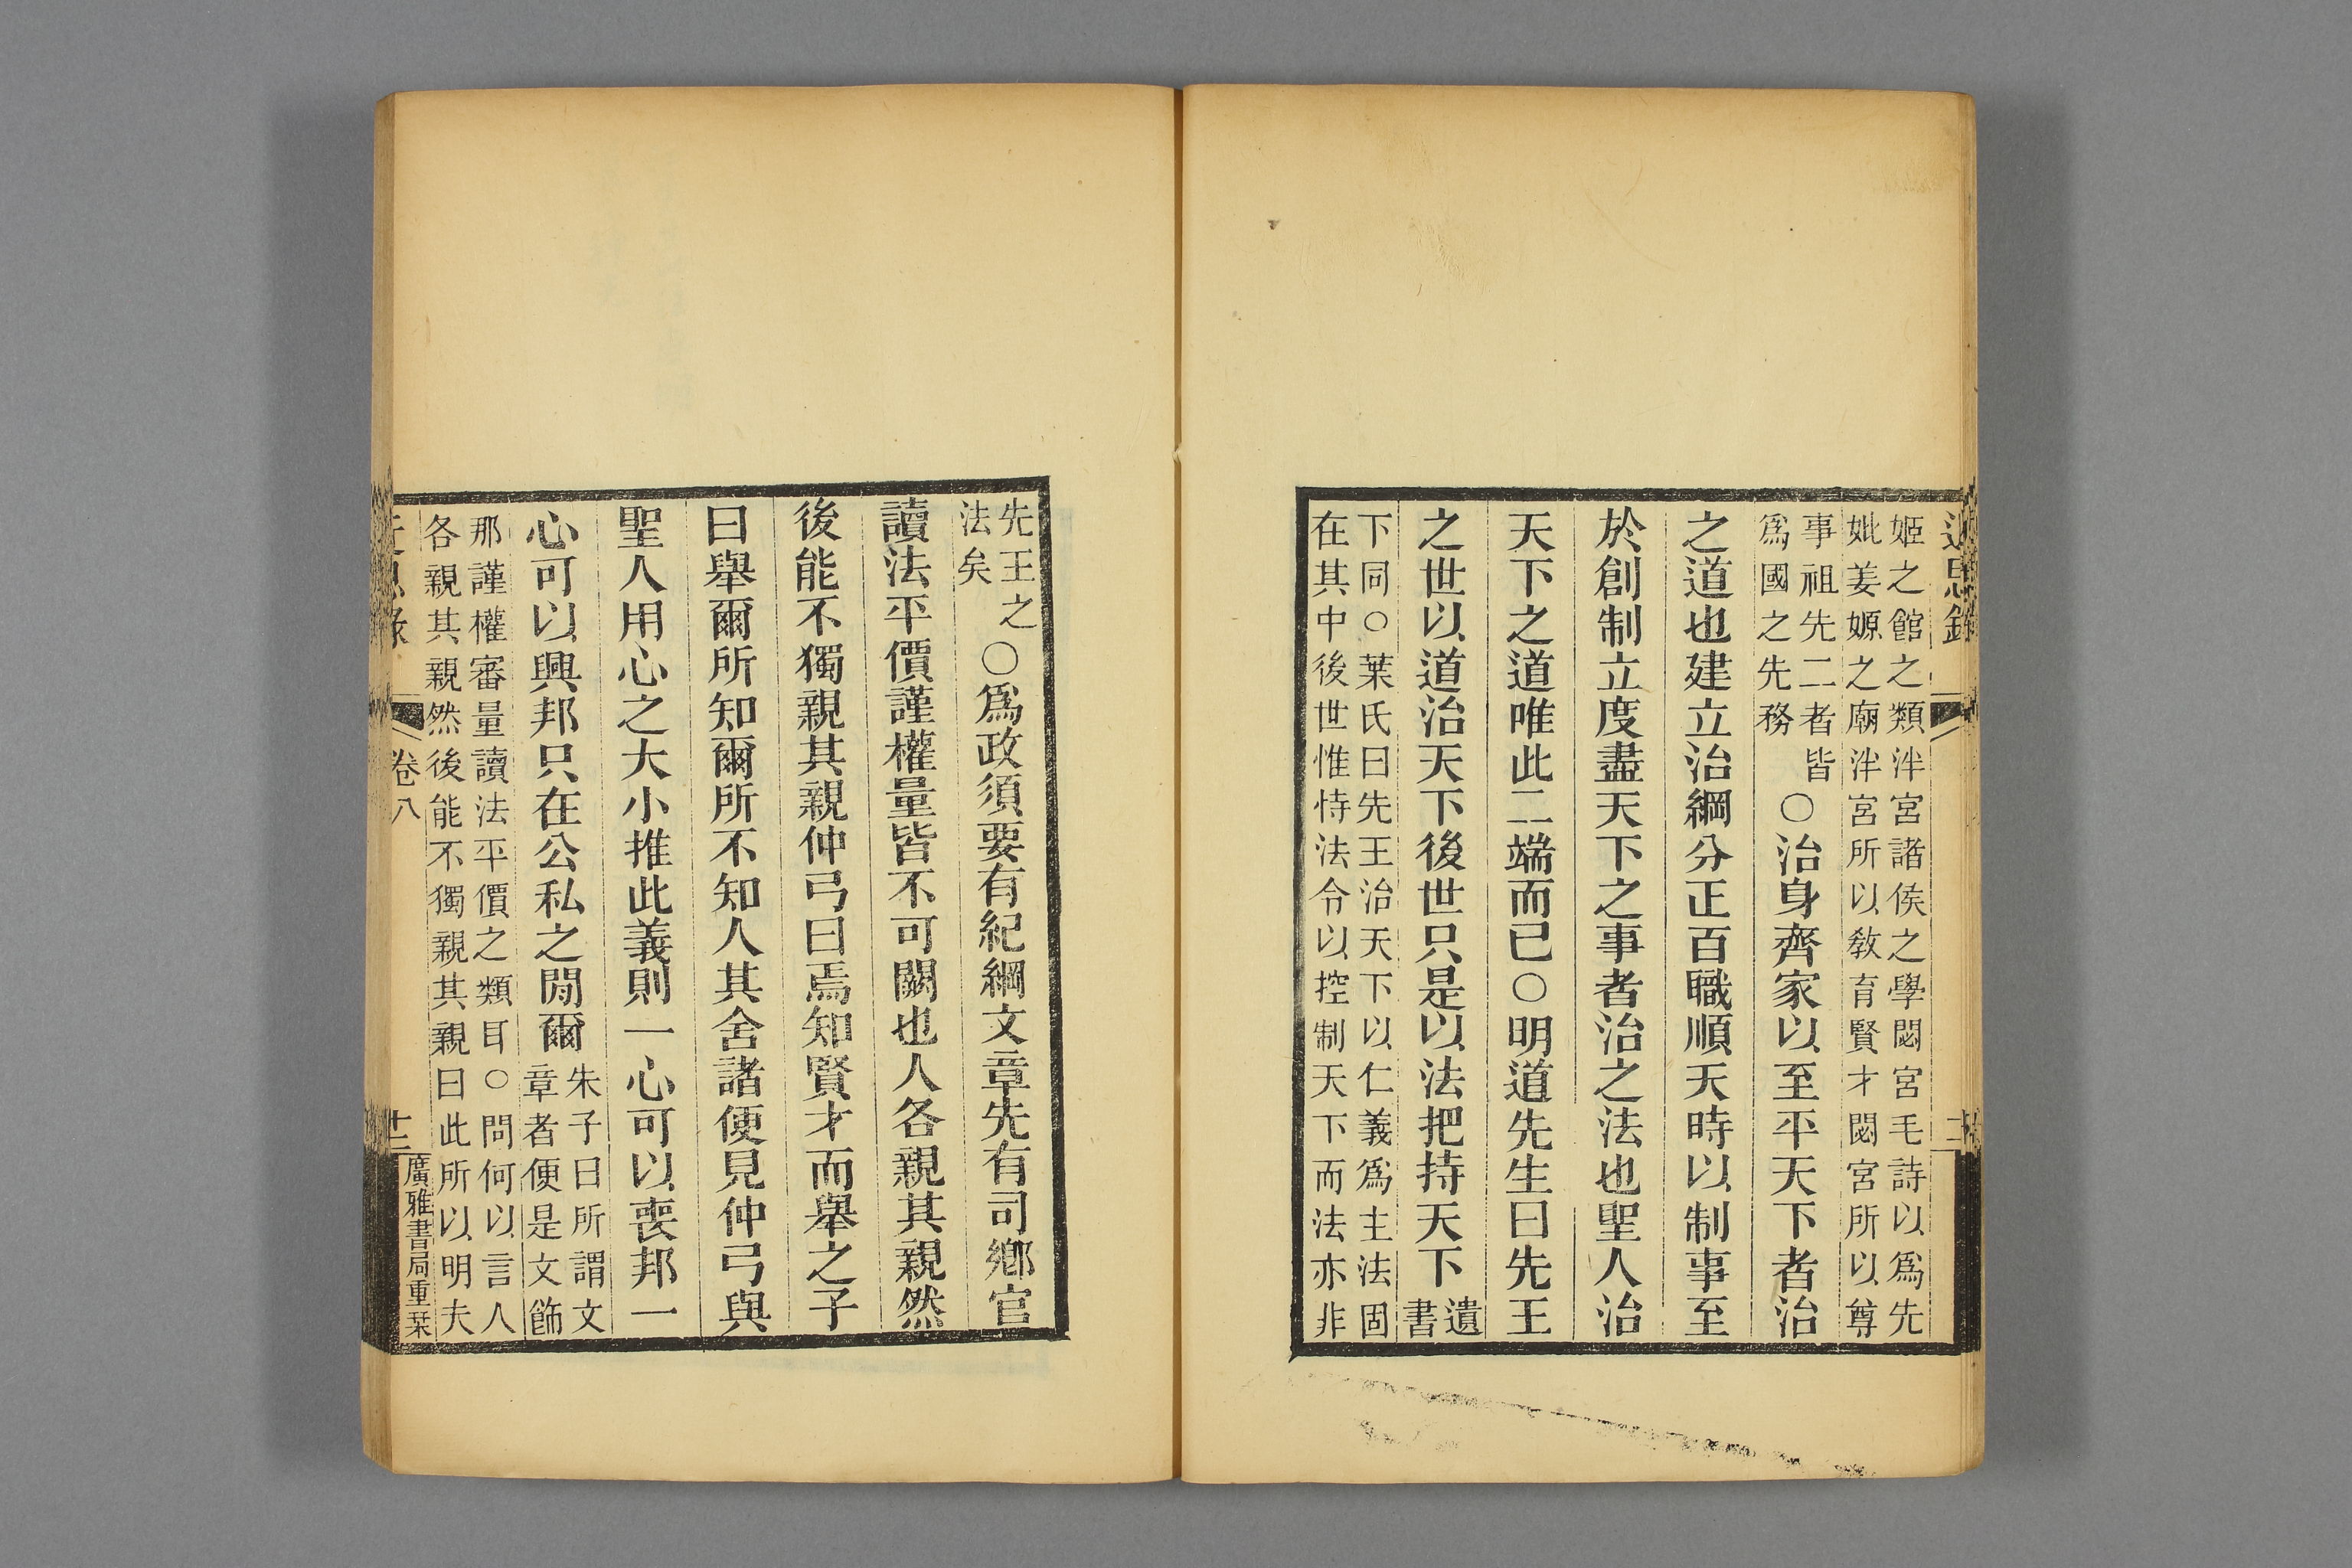 近思錄
十二
姬之館之類泮宮諸侯之學閟宮毛詩以爲先
妣姜嫄之廟泮宮所以敎育賢才閟宮所以尊
事祖先二者皆
爲國之先務
○治身齊家以至平天下者治
之道也建立治綱分正百職順天時以制事至
於創制立度盡天下之事者治之法也聖人治
天下之道唯此二端而已○明道先生曰先王
之世以道治天下後世只是以法把持天下
遺
書
下同○葉氏曰先王治天下以仁義爲主法固
在其中後世惟恃法令以控制天下而法亦非
先王之
法矣
○爲政須要有紀綱文章先有司鄉官
讀法平價謹權量皆不可闕也人各親其親然
後能不獨親其親仲弓曰焉知賢才而舉之子
曰舉爾所知爾所不知人其舍諸便見仲弓與
聖人用心之大小推此義則一心可以喪邦一
心可以興邦只在公私之閒爾
朱子曰所謂文
章者便是文飾
那謹權審量讀法平價之類耳○問何以言人
各親其親然後能不獨親其親曰此所以明夫
近思錄
卷八
十三
廣雅書局重栞